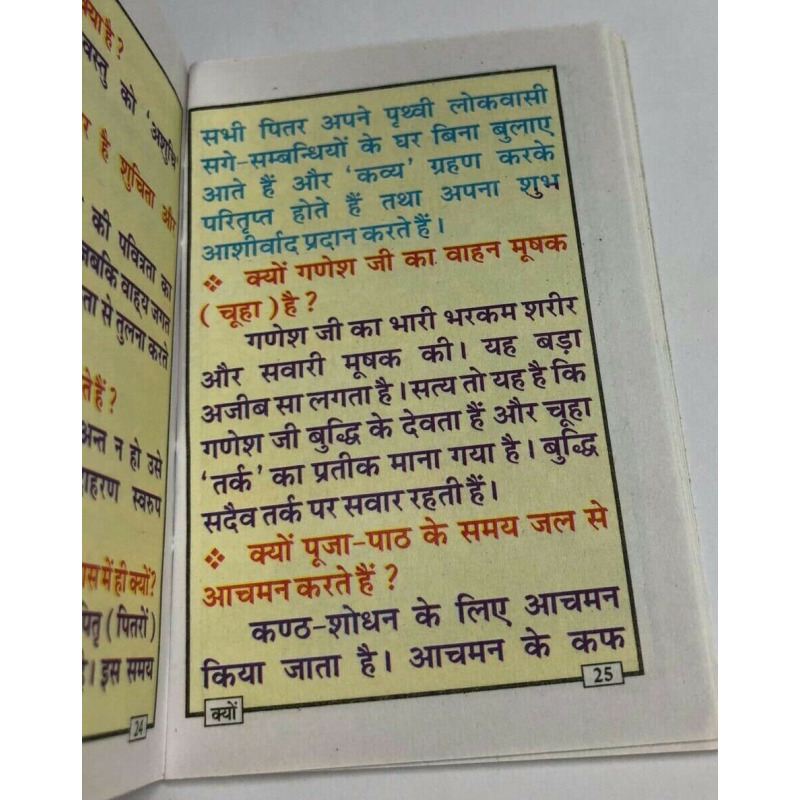 क्या है ?
वस्तु को 'अशुचि'
र है शुचिता और
की पवित्रता का
जबकि वाह्य जगत
ता से तुलना करते
ते हैं ?
अन्त न हो उसे
दाहरण स्वरुप
स में ही क्यों?
पितृ ( पितरों )
है। इस समय
24
सभी पितर अपने पृथ्वी लोकवासी
सगे-सम्बन्धियों के घर बिना बुलाए
आते हैं और 'कव्य' ग्रहण करके
परितृप्त होते हैं तथा अपना शुभ
आशीर्वाद प्रदान करते हैं।
❖ क्यों गणेश जी का वाहन मूषक
( चूहा ) है ?
गणेश जी का भारी भरकम शरीर
और सवारी मूषक की। यह बड़ा
अजीब सा लगता है। सत्य तो यह है कि
गणेश जी बुद्धि के देवता हैं और चूहा
'तर्क' का प्रतीक माना गया है। बुद्धि
सदैव तर्क पर सवार रहती हैं।
❖ क्यों पूजा-पाठ के समय जल से
आचमन करते हैं ?
कण्ठ-शोधन के लिए आचमन
किया जाता है। आचमन के कफ
क्यों
25